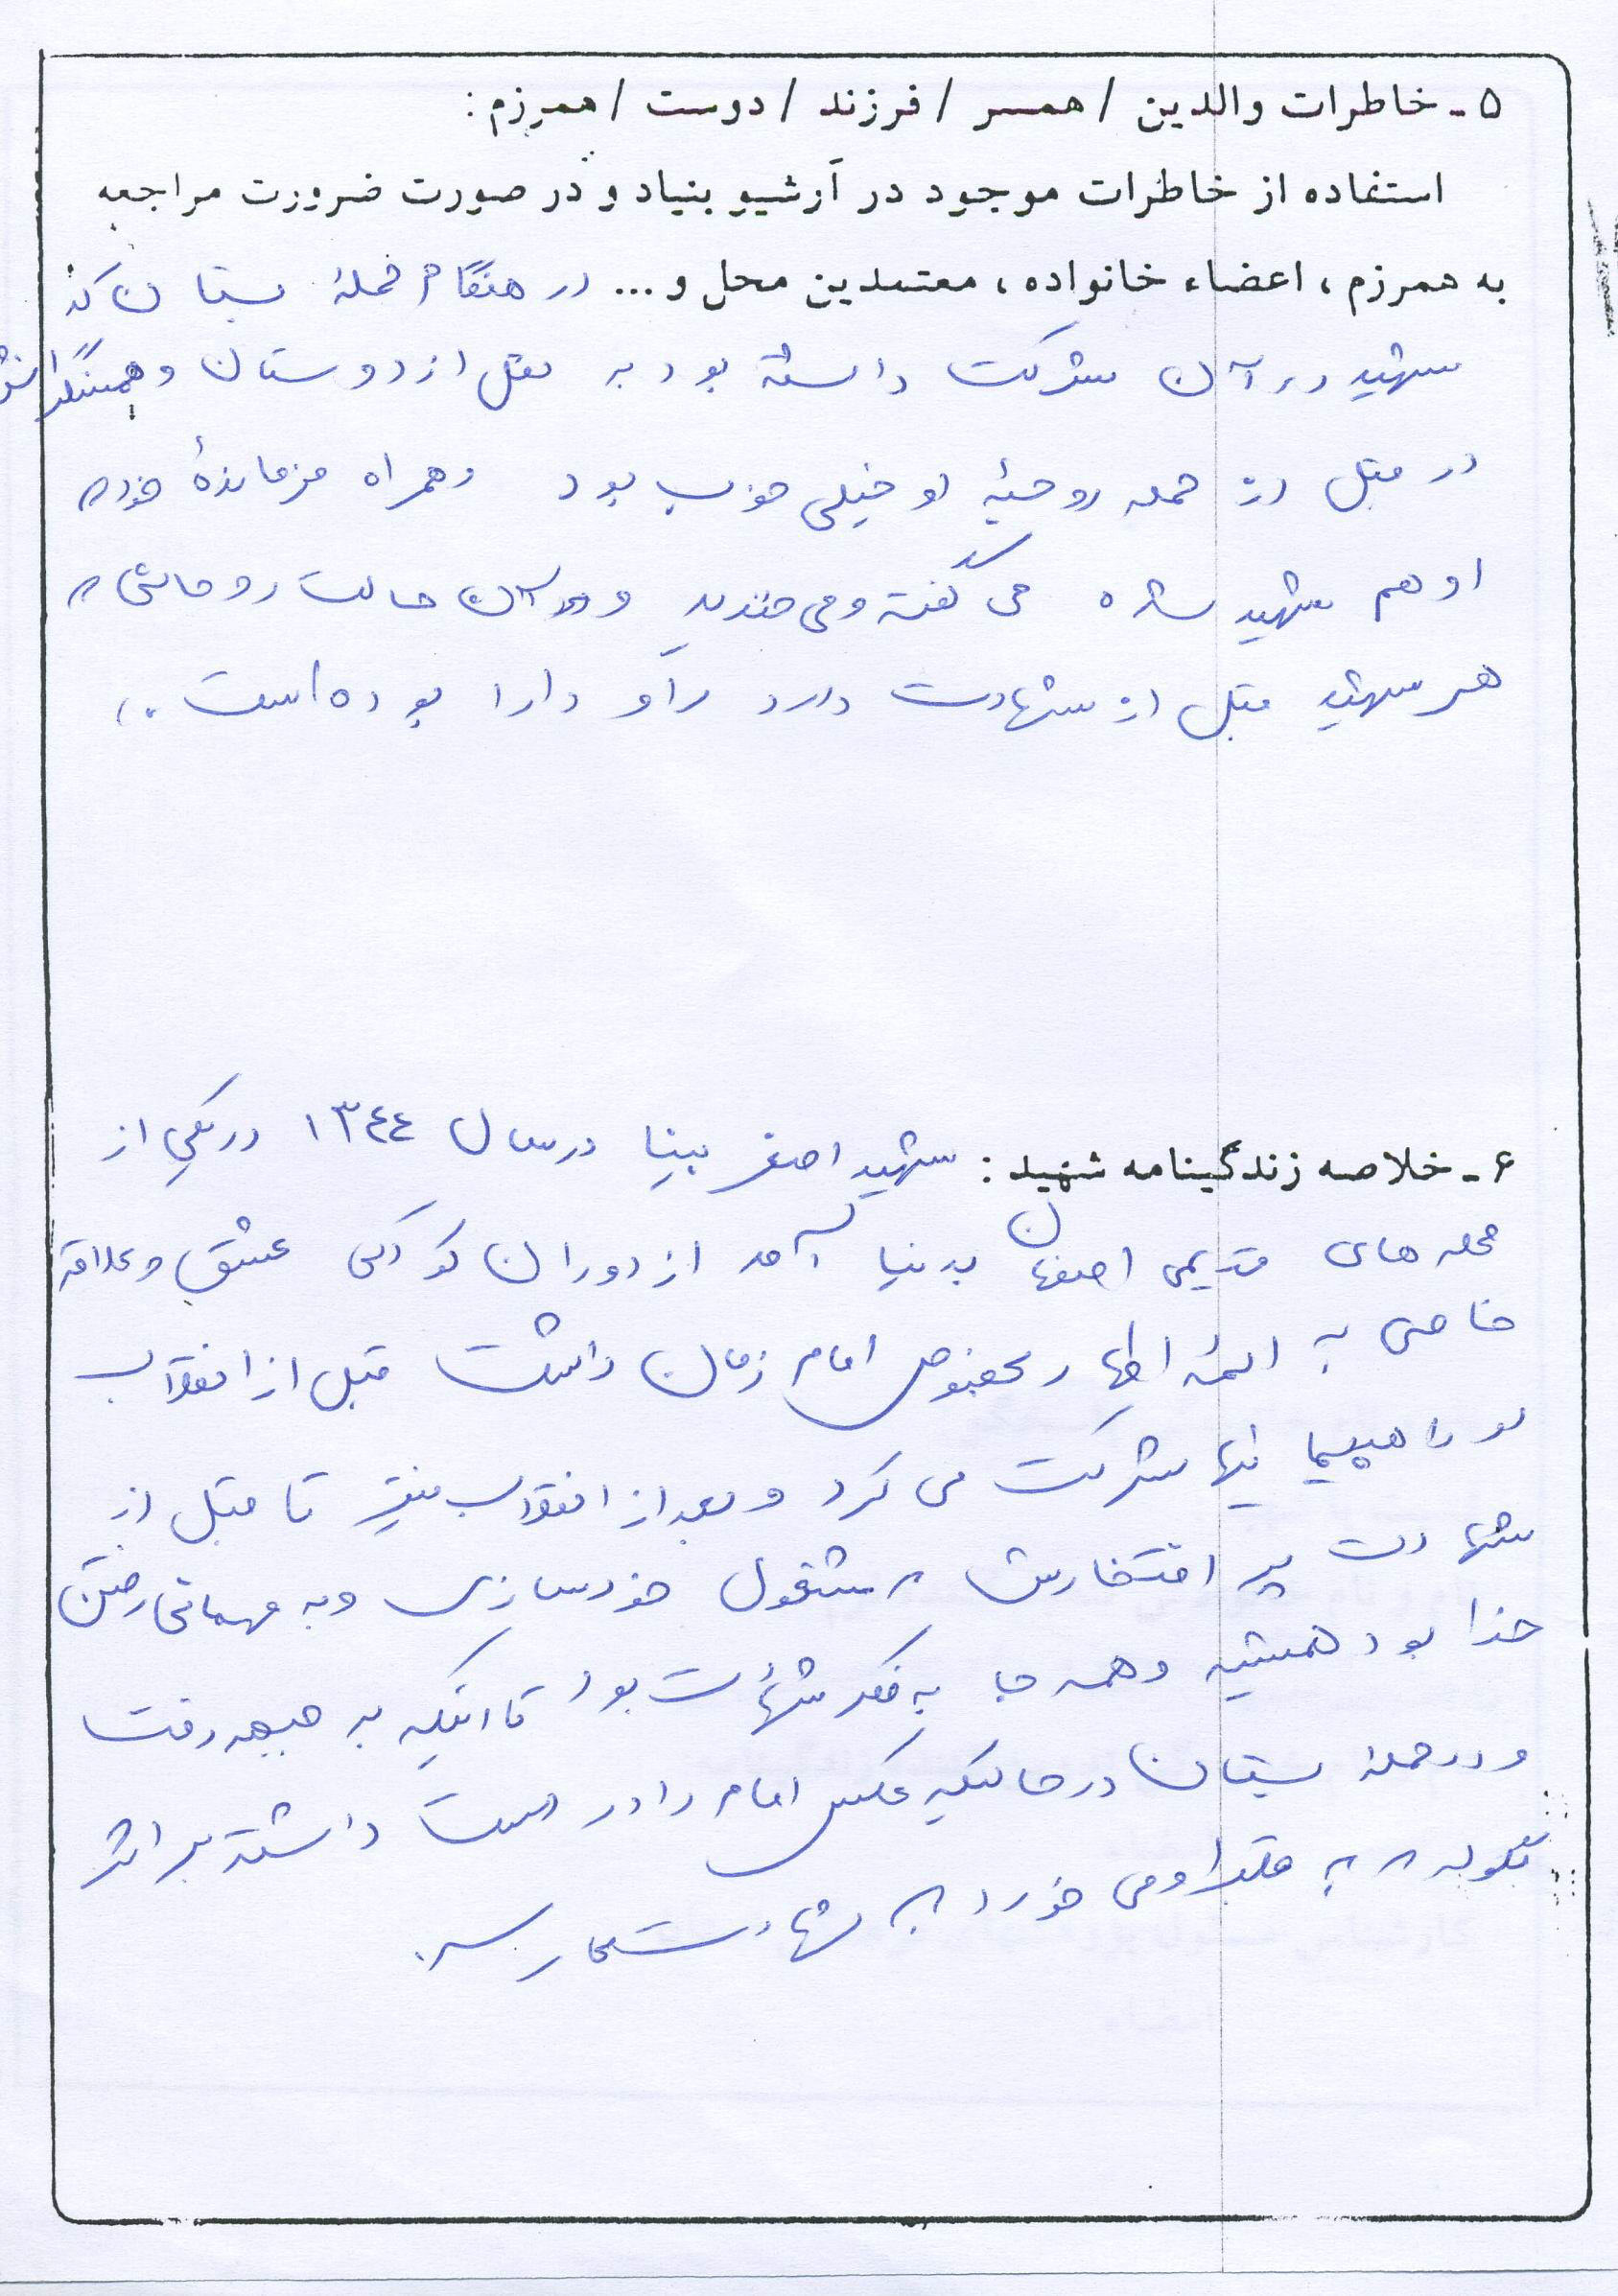 ۵ - خاطرات والدین / همسر / فرزند / دوست / همرزم :
استفاده از خاطرات موجود در آرشیو بنیاد و در صورت ضرورت مراجعه
به همرزم ، اعضاء خانواده ، معتمدین محل و ... در هنگام حملهٔ بستان که
شهید در آن شرکت داشته بود به نقل از دوستان و همسنگرانش
در قبل از حمله روحیهٔ او خیلی خوب بود و همراه فرماندهٔ خود که
او هم شهید شده می گفته و می خندید و آن حالت روحانی که
هر شهید قبل از شهادت دارد را او دارا بوده است .
۶ - خلاصه زندگینامه شهید : شهید اصغر بینا در سال ١٣٤٤ در یکی از
محله های قدیمی اصفهان بدنیا آمد از دوران کودکی عشق و علاقه
خاصی به ائمه اطهار بخصوص امام زمان داشت قبل از انقلاب
در راهپیمائیها شرکت می کرد و بعد از انقلاب نیز تا قبل از
شهادت پر افتخارش مشغول خودسازی و به مهمانی رفتن
خدا بود همیشه و همه جا به فکر شهادت بود تا اینکه به جبهه رفت
و در حملهٔ بستان در حالیکه عکس امام را در دست داشته بر اثر
گلوله که به قلب او می خورد به شهادت می رسد .